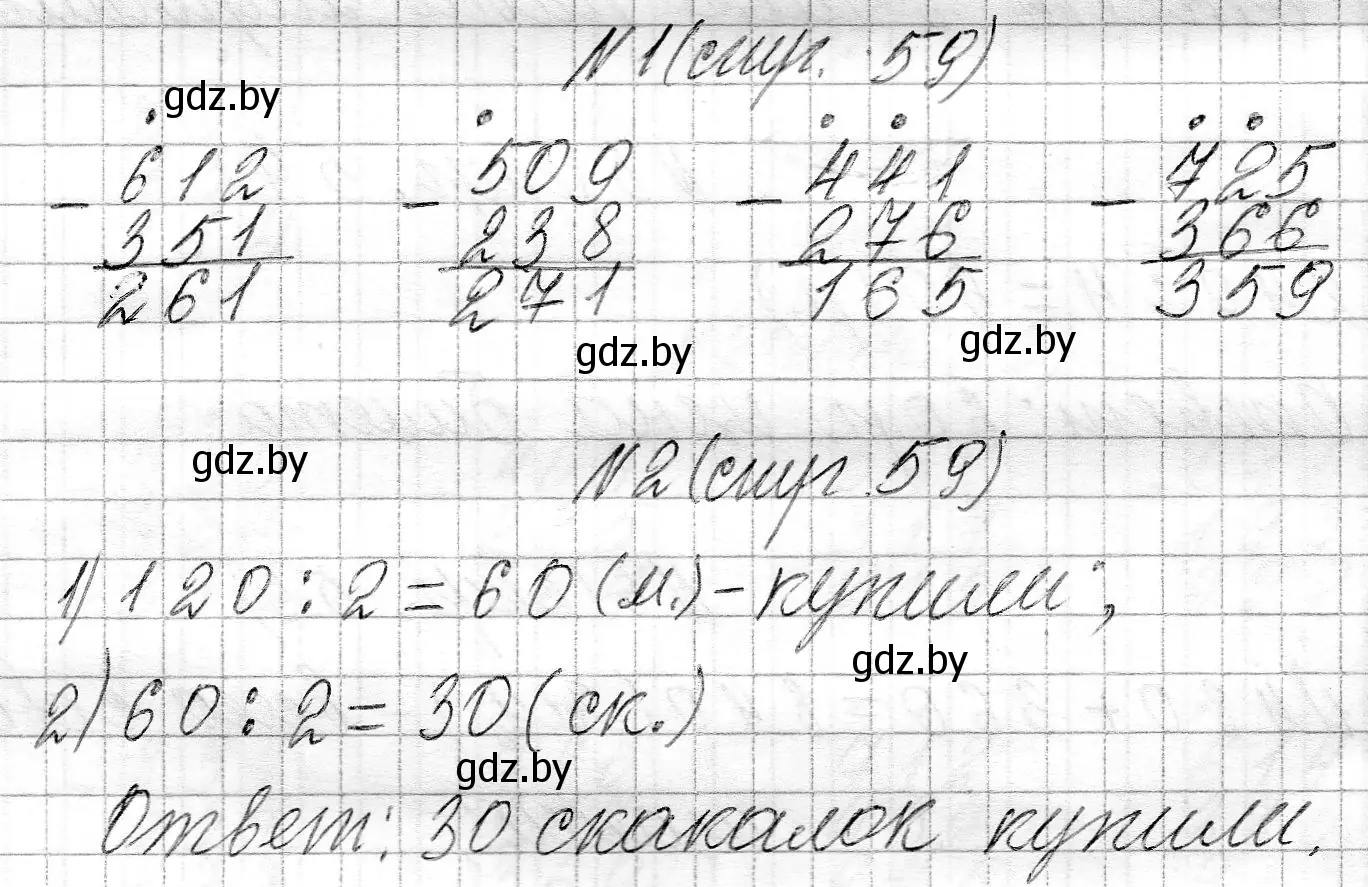 №1 (стр. 59)
gdz.by
612 509 441 725
- - - -
351 238 276 366
261 271 165 359
gdz.by gdz.by
gdz.by
№2 (стр. 59)
1) 120 : 2 = 60 (м.) - купили;
gdz.by
2) 60 : 2 = 30 (ск.)
gdz.by
Ответ: 30 скакалок купили.